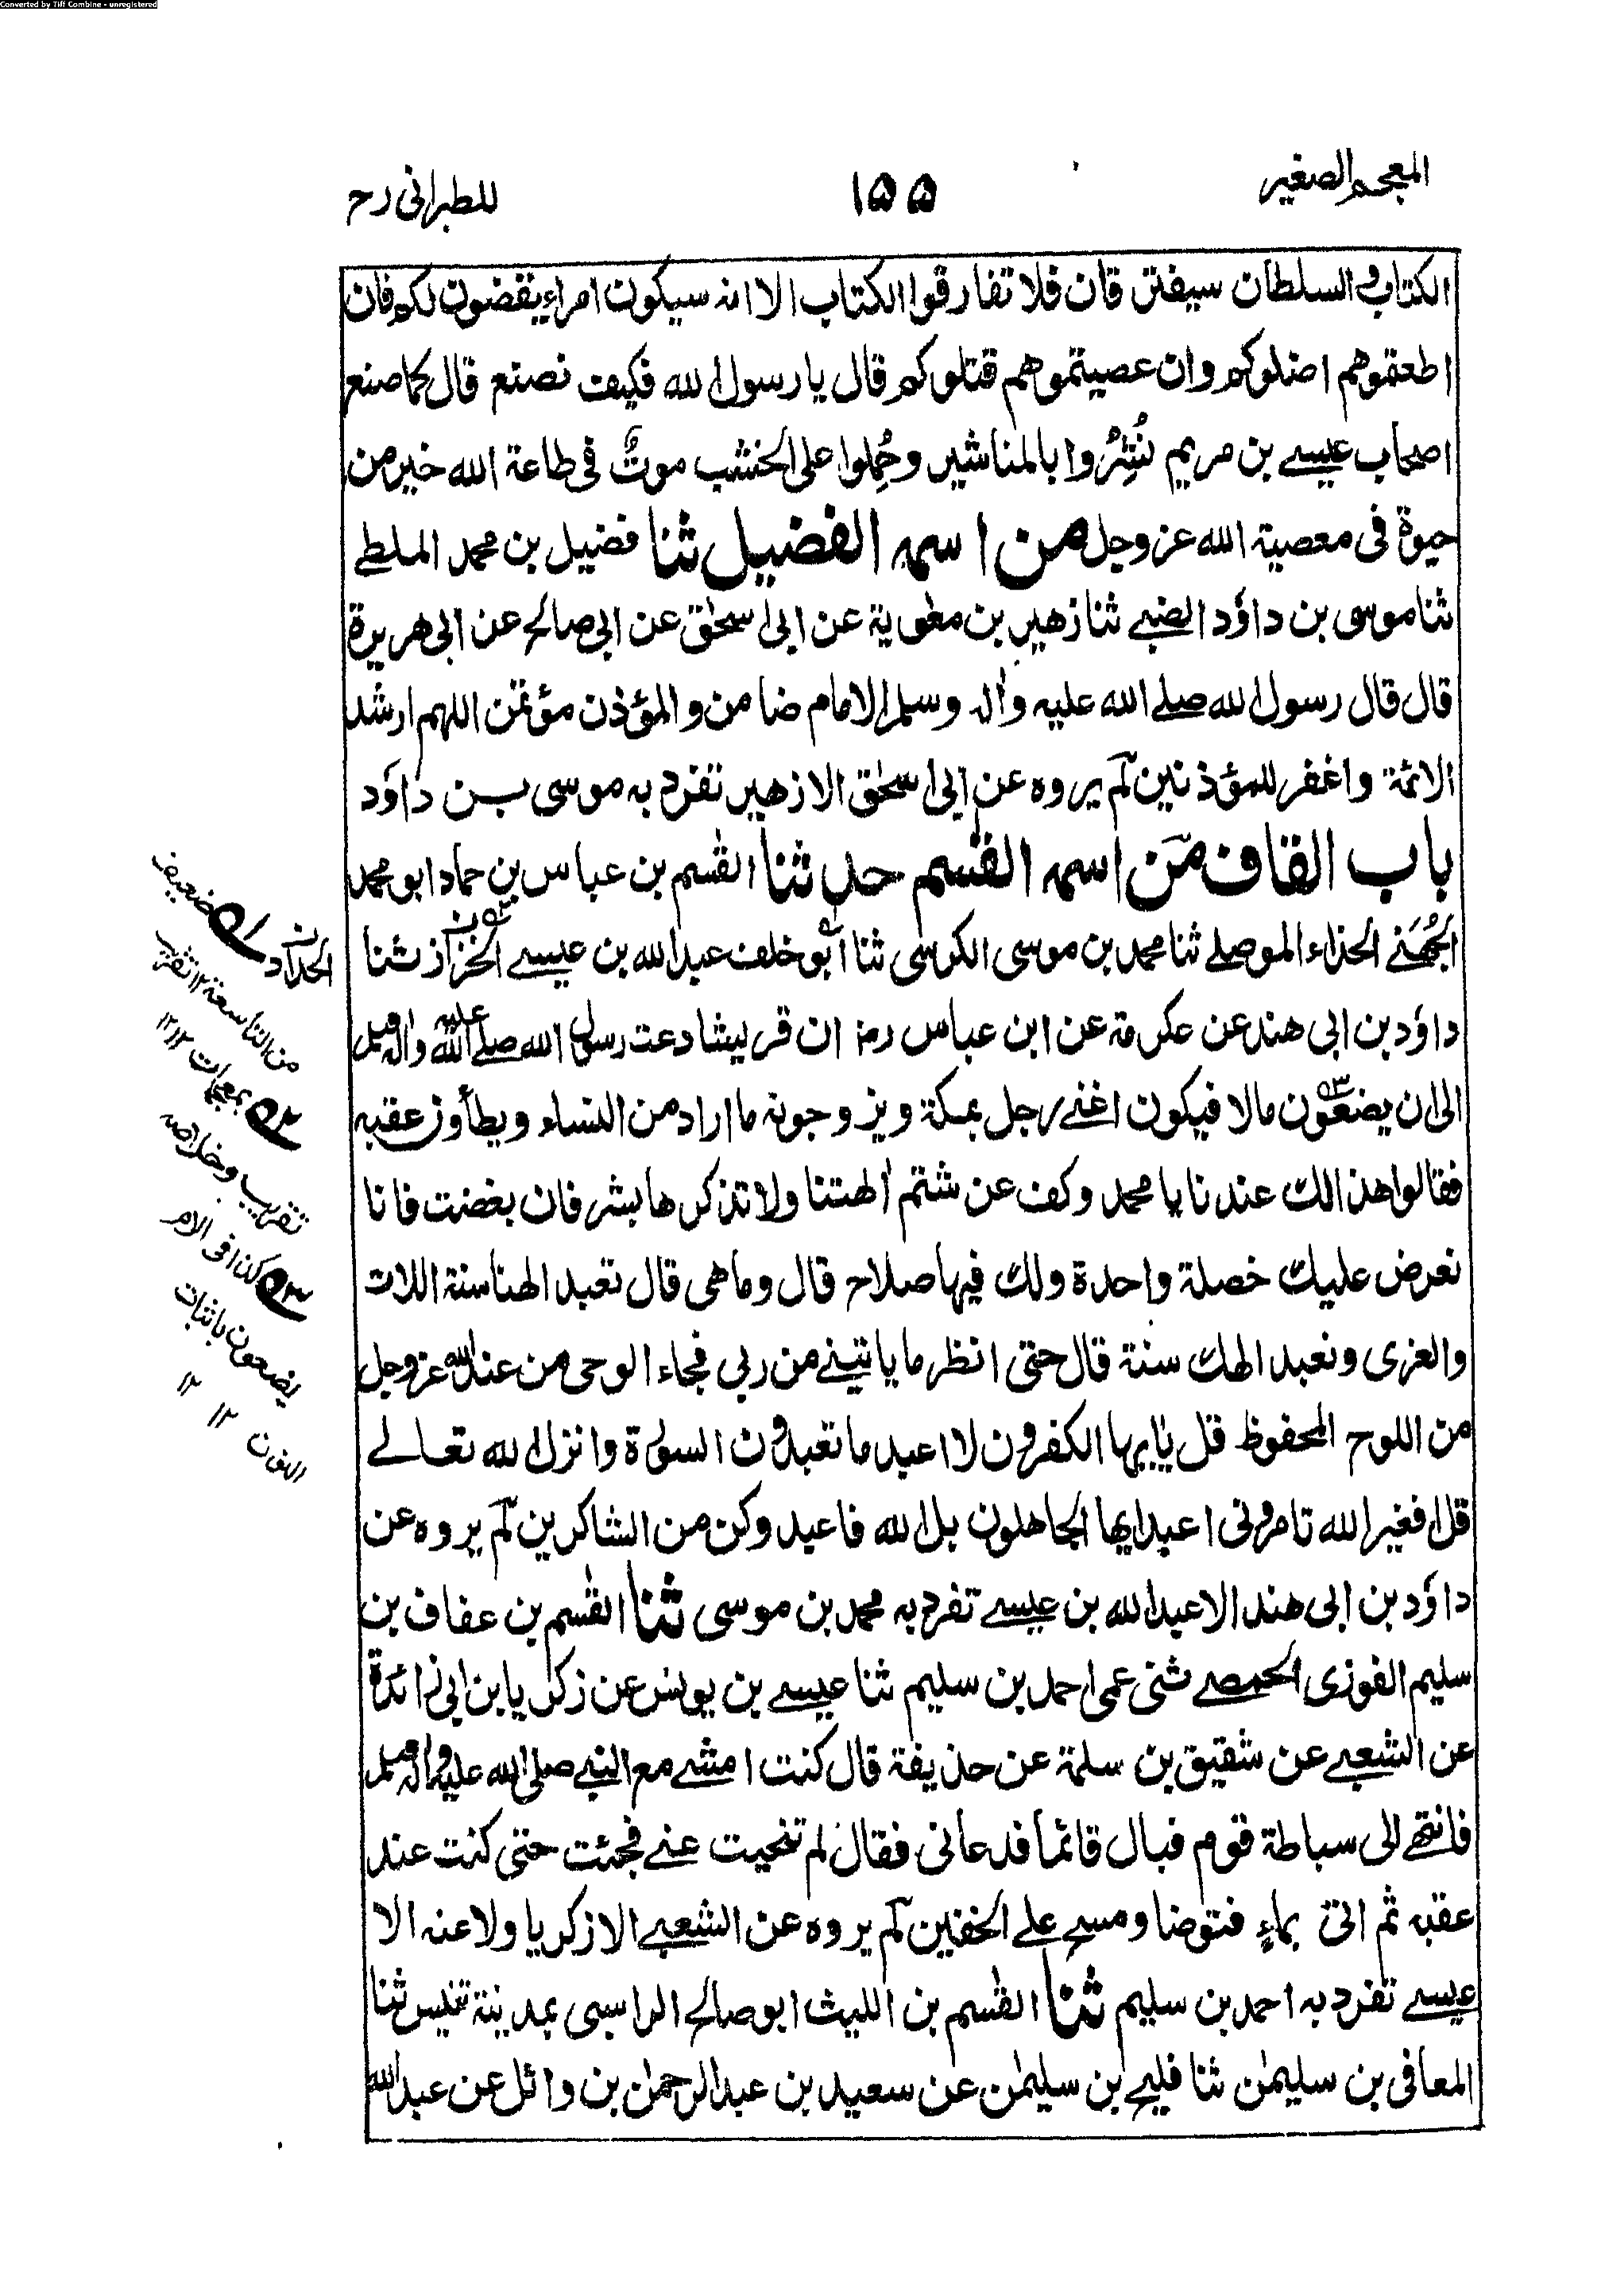 Converted by Tiff Combine - unregistered
المعجم الصغير
١٥٥
للطبرانی رح
الكتاب والسلطان سيفترقان فلا تفارقوا الكتاب الا انه سيكون امراء يقضون لكم فان
اطعتموهم اضلوكم وان عصيتموهم قتلوكم قال يا رسول الله فكيف نصنع قال كما صنع
اصحاب عيسے بن مريم نُشِرُوا بالمناشير وحُمِلوا على الخشب موتٌ فى طاعة الله خير من
حيوة فى معصية الله عز وجل من اسمه الفضيل ثنا فضيل بن محمد الملطے
ثنا موسى بن داؤد الضبے ثنا زهير بن معٰوية عن ابى اسحٰق عن ابى صالح عن ابى هريرة
قال قال رسول الله صلے الله عليه واٰله وسلم الامام ضامن والمؤذن مؤتمن اللهم ارشد
الائمة واغفر للمؤذنين لم يروه عن ابى اسحٰق الا زهير تفرد به موسى بن داؤد
باب القاف من اسمه القٰسم حدثنا القٰسم بن عباس بن حماد ابو محمد
الجُهَنے الحذاء الموصلے ثنا محمد بن موسى الكرسى ثنا ابو خلف عبد الله بن عيسے الخزاز ثنا
داؤد بن ابى هند عن عكرمة عن ابن عباس رض ان قريشا دعت رسول الله صلے الله عليه واٰله وسلم
الى ان يضعون مالا فيكون اغنے رجل بمكة ويزوجونه ما اراد من النساء ويطأون عقبه
فقالوا هذا لك عندنا يا محمد وكف عن شتم اٰلهتنا ولا تذكرها بشر فان بغضت فانا
نعرض عليك خصلة واحدة ولك فيها صلاح قال وما هى قال تعبد الهنا سنة اللات
والعزى ونعبد الهك سنة قال حتى انظر ما ياتينے من ربى فجاء الوحى من عند الله عز وجل
من اللوح المحفوظ قل يٰايها الكفرون لا اعبد ما تعبدون السورة وانزل الله تعالے
قل افغير الله تامرونى اعبد ايها الجاهلون بل الله فاعبد وكن من الشاكرين لم يروه عن
داؤد بن ابى هند الا عبد الله بن عيسے تفرد به محمد بن موسى ثنا القٰسم بن عفاف بن
سليم الفوزى الحمصے ثنى عمى احمد بن سليم ثنا عيسے بن يونس عن زكريا بن ابى زائدة
عن الشعبے عن شقيق بن سلمة عن حذيفة قال كنت امشے مع النبے صلى الله عليه واٰله وسلم
فانتهے الى سباطة قوم فبال قائما فدعانى فقال لم تنحيت عنے فجئت حتى كنت عند
عقبه ثم اتى بماءٍ فتوضا ومسح علے الخفين لم يروه عن الشعبے الا زكريا ولا عنه الا
عيسے تفرد به احمد بن سليم ثنا القٰسم بن الليث ابو صالح الراسبى بمدينة تنيس ثنا
المعافى بن سليمٰن ثنا فليح بن سليمٰن عن سعيد بن عبد الرحمٰن بن وائل عن عبد الله
ضعيف
من التاسعة ١٢ تقريب
بمعجمات ١٢ ١٢
تقريب وخلاصه
كذا فى الام
يضعون باثبات
النون ١٢ ١٢